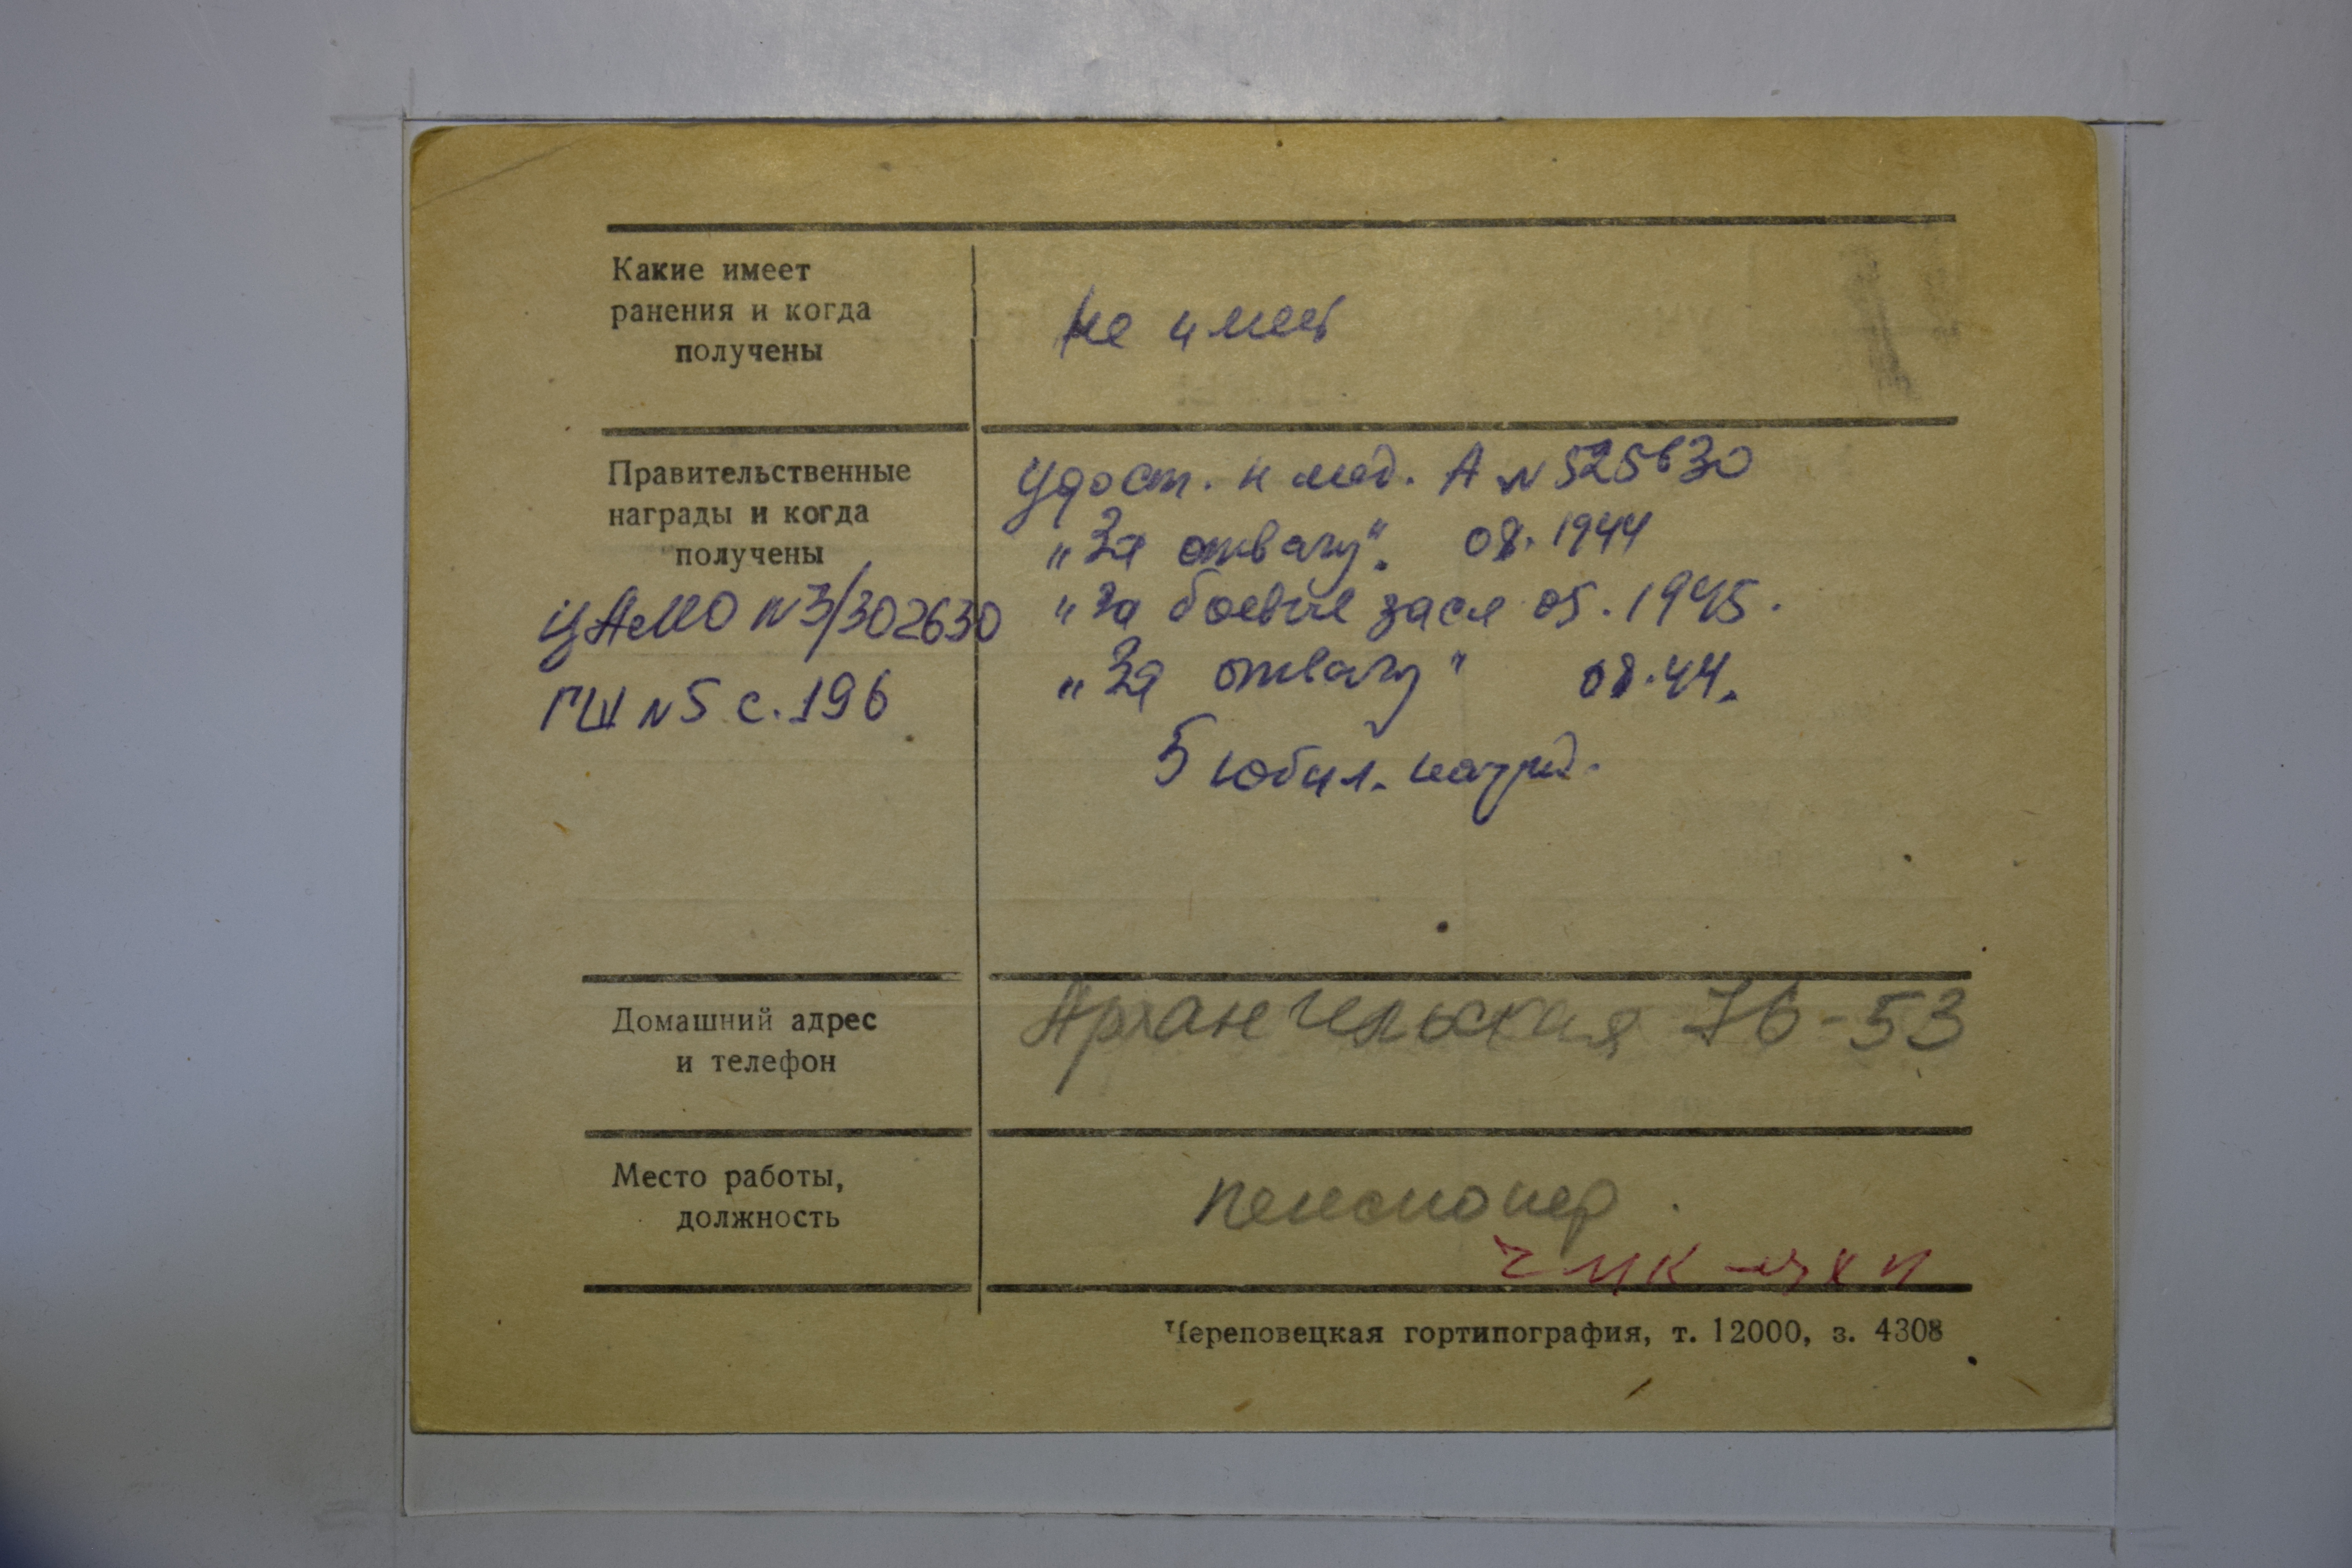 Какие имеет
ранения и когда
получены
не имеет
Правительственные
награды и когда
получены
ЦАМО N3/302630
ГШ N5 с. 196
Удост. к мед. А N 525630
„За отвагу". 08. 1944
„За боевые засл 05. 1945.
„За отвагу" 08.44.
5 юбил. наград.
Домашний адрес
и телефон
Архангельская 76-53
Место работы,
должность
пенсионер.
Череповецкая гортипография, т. 12000, з. 4308